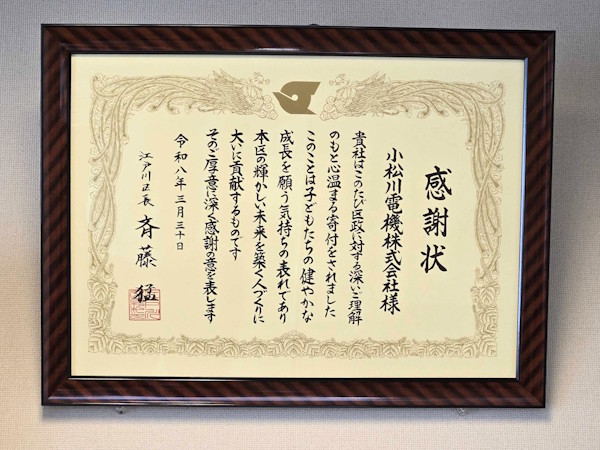 感謝状
小松川電機株式会社様
貴社はこのたび区政に対する深いご理解
のもと心温まる寄付をされました
このことは子どもたちの健やかな
成長を願う気持ちの表れであり
本区の輝かしい未来を築く人づくりに
大いに貢献するものです
そのご厚意に深く感謝の意を表します
令和八年三月三十日
江戸川区長 斉藤 猛